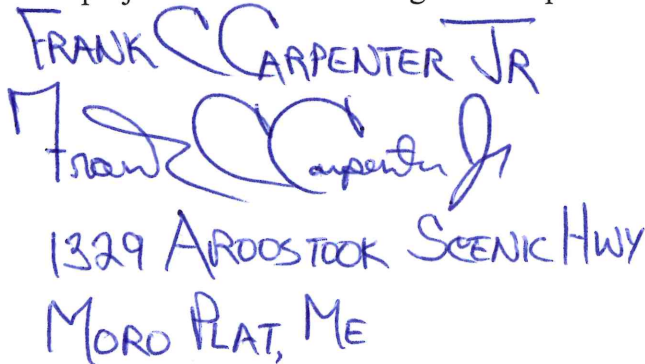 FRANK C CARPENTER JR
Frank C Carpenter Jr
1329 AROOSTOOK SCENIC HWY
MORO PLAT, ME